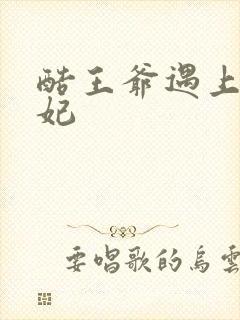 酷王爷遇上
妃
要唱歌的烏雲